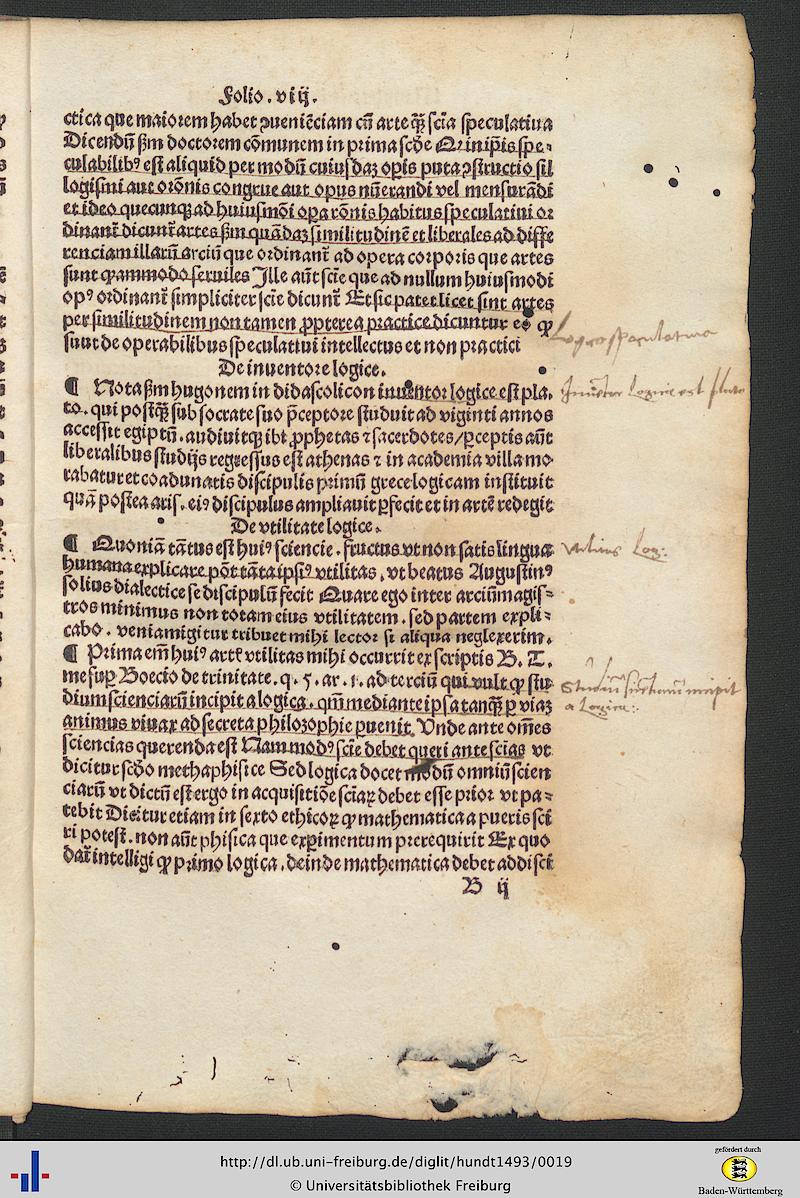 Folio. viij.
ctica que maiorem habet ꝯueniẽciam cũ arte qꝫ̃ scĩa speculatiua
Dicendũ ẜm doctorem cõmunem in prima scďe Q̃ in ip̃is spe-
culabilibꝰ est aliquid per modũ cuiusdaꝫ opis puta ꝯstructio sil
logismi aut orõnis congrue aut opus nũerandi vel mensurãdi
et ideo quecunqꝫ ad huiusmõi opa rõnis habitus speculatiui or
dinanť dicunť artes ẜm quãdaꝫ similitudinẽ et liberales ad diffe
renciam illarũ arciũ que ordinanť ad opera corporis que artes
sunt q̃dammodo seruiles Ille aũt scĩe que ad nullum huiusmodi
opꝰ ordinanť simpliciter scĩe dicunť Et sic patet licet sint artes
per similitudinem non tamen ꝓpterea practice dicuntur eo ꝙ
sunt de operabilibus speculatiui intellectus et non practici
De inuentore logice.
¶ Nota ẜm hugonem in didascolicon inuentor logice est pla-
to. qui postqꝫ̃ sub socrate suo p̃ceptore studuit ad viginti annos
accessit egiptũ. audiuitqꝫ ibi ꝓphetas ⁊ sacerdotes/ꝑceptis aũt
liberalibus studijs regressus est athenas ⁊ in academia villa mo-
rabatur et coadunatis discipulis primũ grece logicam instituit
quã postea aris. eiꝰ discipulus ampliauit ꝑfecit et in artẽ redegit
De vtilitate logice.
¶ Quoniã tãtus est huiꝰ sciencie. fructus vt non satis lingua
humana explicare põt tãta ipsiꝰ vtilitas, vt beatus Augustinꝰ
solius dialectice se discipulũ fecit Quare ego inter arciũ magis-
tros minimus non totam eius vtilitatem. sed partem expli-
cabo. veniam igitur tribuet mihi lector si aliqua neglexerim.
¶ Prima em̃ huiꝰ artꝭ vtilitas mihi occurrit ex scriptis B. T.
me suꝑ Boecio de trinitate. q. 5. ar. 1. ad terciũ qui vult ꝙ stu-
dium scienciarũ incipit a logica. qm̃ mediante ipsa tanqꝫ̃ ꝑ viaꝫ
animus viuax ad secreta philozophie ꝑuenit. Vnde ante oẽs
sciencias querenda est Nam modꝰ scĩe debet queri ante scĩas vt
dicitur scďo methaphisice Sed logica docet modũ omniũ scien
ciarũ vt dictũ est ergo in acquisitiõe scĩaꝝ debet esse prior vt pa-
tebit Dicitur etiam in sexto ethicoꝝ ꝙ mathematica a pueris sci
ri potest. non aũt phisica que experimentum prerequirit Ex quo
dať intelligi ꝙ primo logica. deinde mathematica debet addisci
B ij
Inuẽtor Logice est plato
vtilitas Log:
Studiũ scientiarũ incipit
a Logica:
http://dl.ub.uni-freiburg.de/diglit/hundt1493/0019
© Universitätsbibliothek Freiburg
gefördert durch
Baden-Württemberg